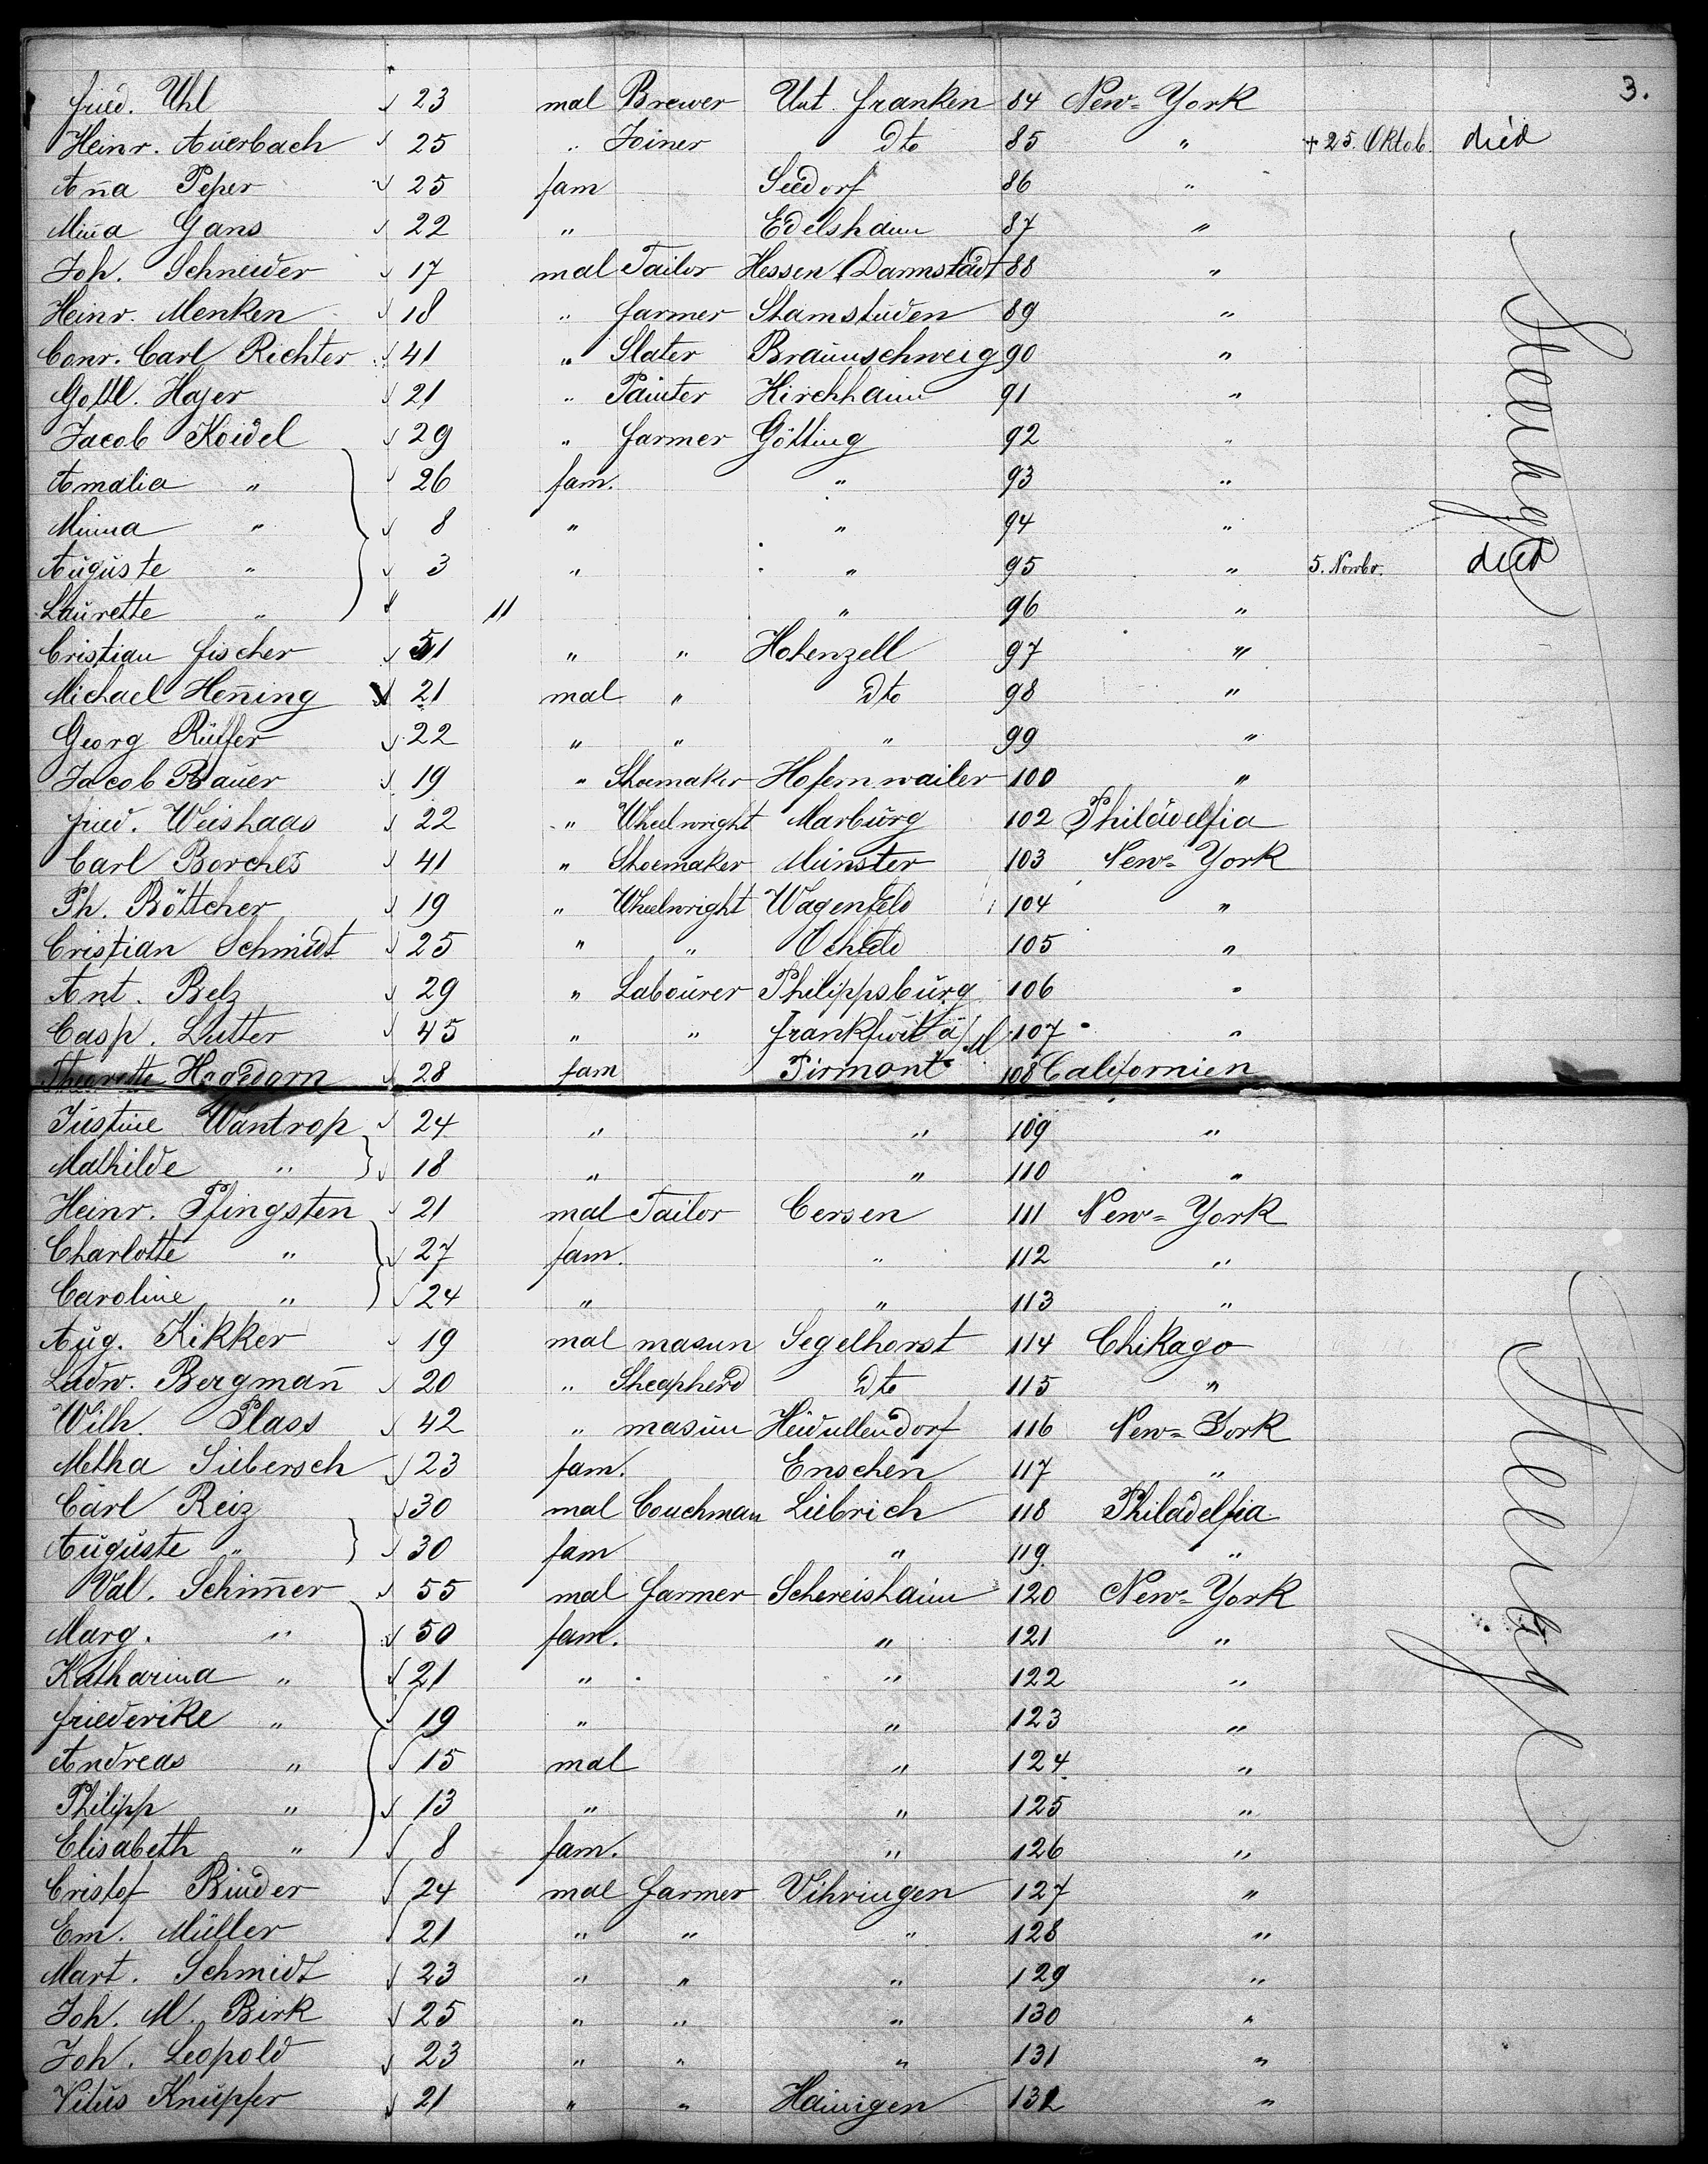 3.
fried. Uhl 23 mal Brewer Unt. franken 84 New-York
Heinr. Auerbach 25 " Joiner Dto 85 " + 25. Oktob. died
Ana Peper 25 fam Seedorf 86 "
Mina Gans 22 " Edelshaim 87 "
Joh. Schneider 17 mal Tailor Hessen Darmstadt 88 "
Heinr. Menken 18 " farmer 89 "
Conr. Carl Richter 41 " Slater Braunschweig 90 "
Gottl. Hajer 21 " Painter Kirchhaim 91 "
Jacob Koidel 29 " farmer Götting 92 "
Amalia " 26 fam. " 93 "
Minna " 8 " " 94 "
Auguste " 3 " " 95 " 5. Novbr. died
Laurette " 11 " 96 "
Cristian fischer 51 " " Hohenzell 97 "
Michael Hening 21 mal " Dto 98 "
Georg Rülfer 22 " " " 99 "
Jacob Bauer 19 " Shoemaker 100 "
fried. Weishaas 22 " Wheelwright Marburg 102 Philadelfia
Carl Borches 41 " Shoemaker Münster 103 New-York
Ph. Böttcher 19 " Wheelwright Wagenfeld 104 "
Cristian Schmidt 25 " " 105 "
Ant. Belz 29 " Labourer Philippsburg 106 "
Casp. Lutter 45 " " frankfurt a/M 107 "
Hagedorn 28 fam Pirmont 108 Californien
Justine Wantrop 24 " " 109 "
Mathilde " 18 " " 110 "
Heinr. Pfingsten 21 mal Tailor Cersen 111 New-York
Charlotte " 27 fam. " 112 "
Caroline " 24 " " 113 "
Aug. Kikker 19 mal masun Segelhorst 114 Chikago
Ludw. Bergman 20 " Sheapherd Dto 115 "
Wilh. Plass 42 " masun 116 New-York
Metha Siebersch 23 fam. Enschen 117 "
Carl Reiz 30 mal Couchman Liebrich 118 Philadelfia
Auguste " 30 fam " 119 "
Val. Schimer 55 mal farmer Schereishaim 120 New-York
Marg. " 50 fam. " 121 "
Katharina " 21 " " 122 "
friederike " 19 " " 123 "
Andreas " 15 mal " 124 "
Philipp " 13 " " 125 "
Elisabeth " 8 fam. " 126 "
Cristof Binder 24 mal farmer Vihringen 127 "
Em. Müller 21 " " " 128 "
Mart. Schmidt 23 " " " 129 "
Joh. M. Birk 25 " " " 130 "
Joh. Leopold 23 " " " 131 "
Vitus Knüpfer 21 " " Hainigen 132 "
Steerage
Steerage